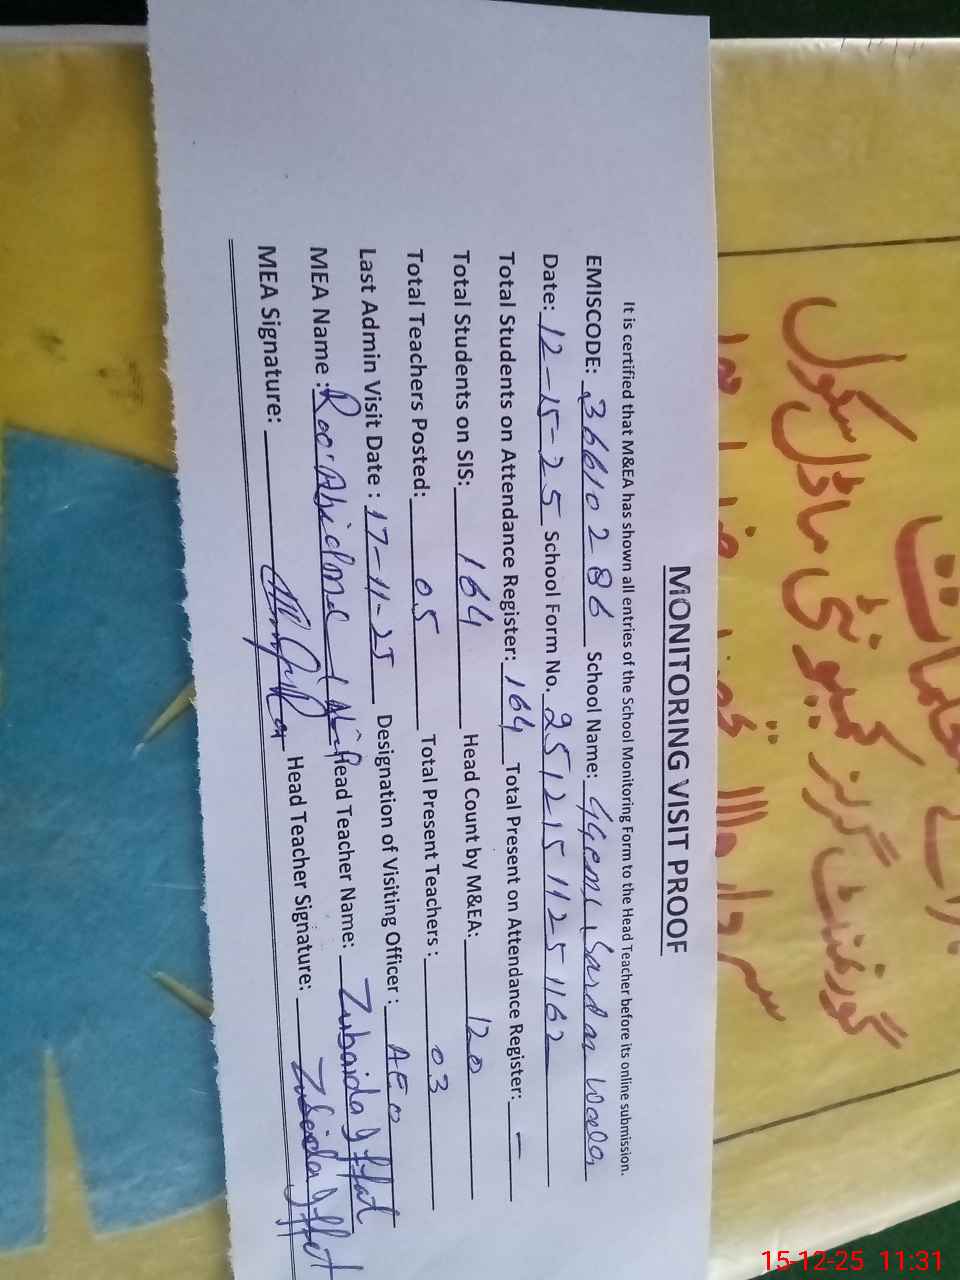 MONITORING VISIT PROOF
It is certified that M&EA has shown all entries of the School Monitoring Form to the Head Teacher before its online submission.
EMISCODE: 36610286 School Name: GGCMS Sardar Wala
Date: 12-15-25 School Form No. 25121511251162
Total Students on Attendance Register: 164 Total Present on Attendance Register: —
Total Students on SIS: 164 Head Count by M&EA: 120
Total Teachers Posted: 05 Total Present Teachers: 03
Last Admin Visit Date: 17-11-25 Designation of Visiting Officer: AEO
MEA Name: Head Teacher Name: Zubaida Iffat
MEA Signature: Head Teacher Signature: Zubaida Iffat
گورنمنٹ گرلز کمیونٹی ماڈل سکول
سردار والا
15-12-25 11:31